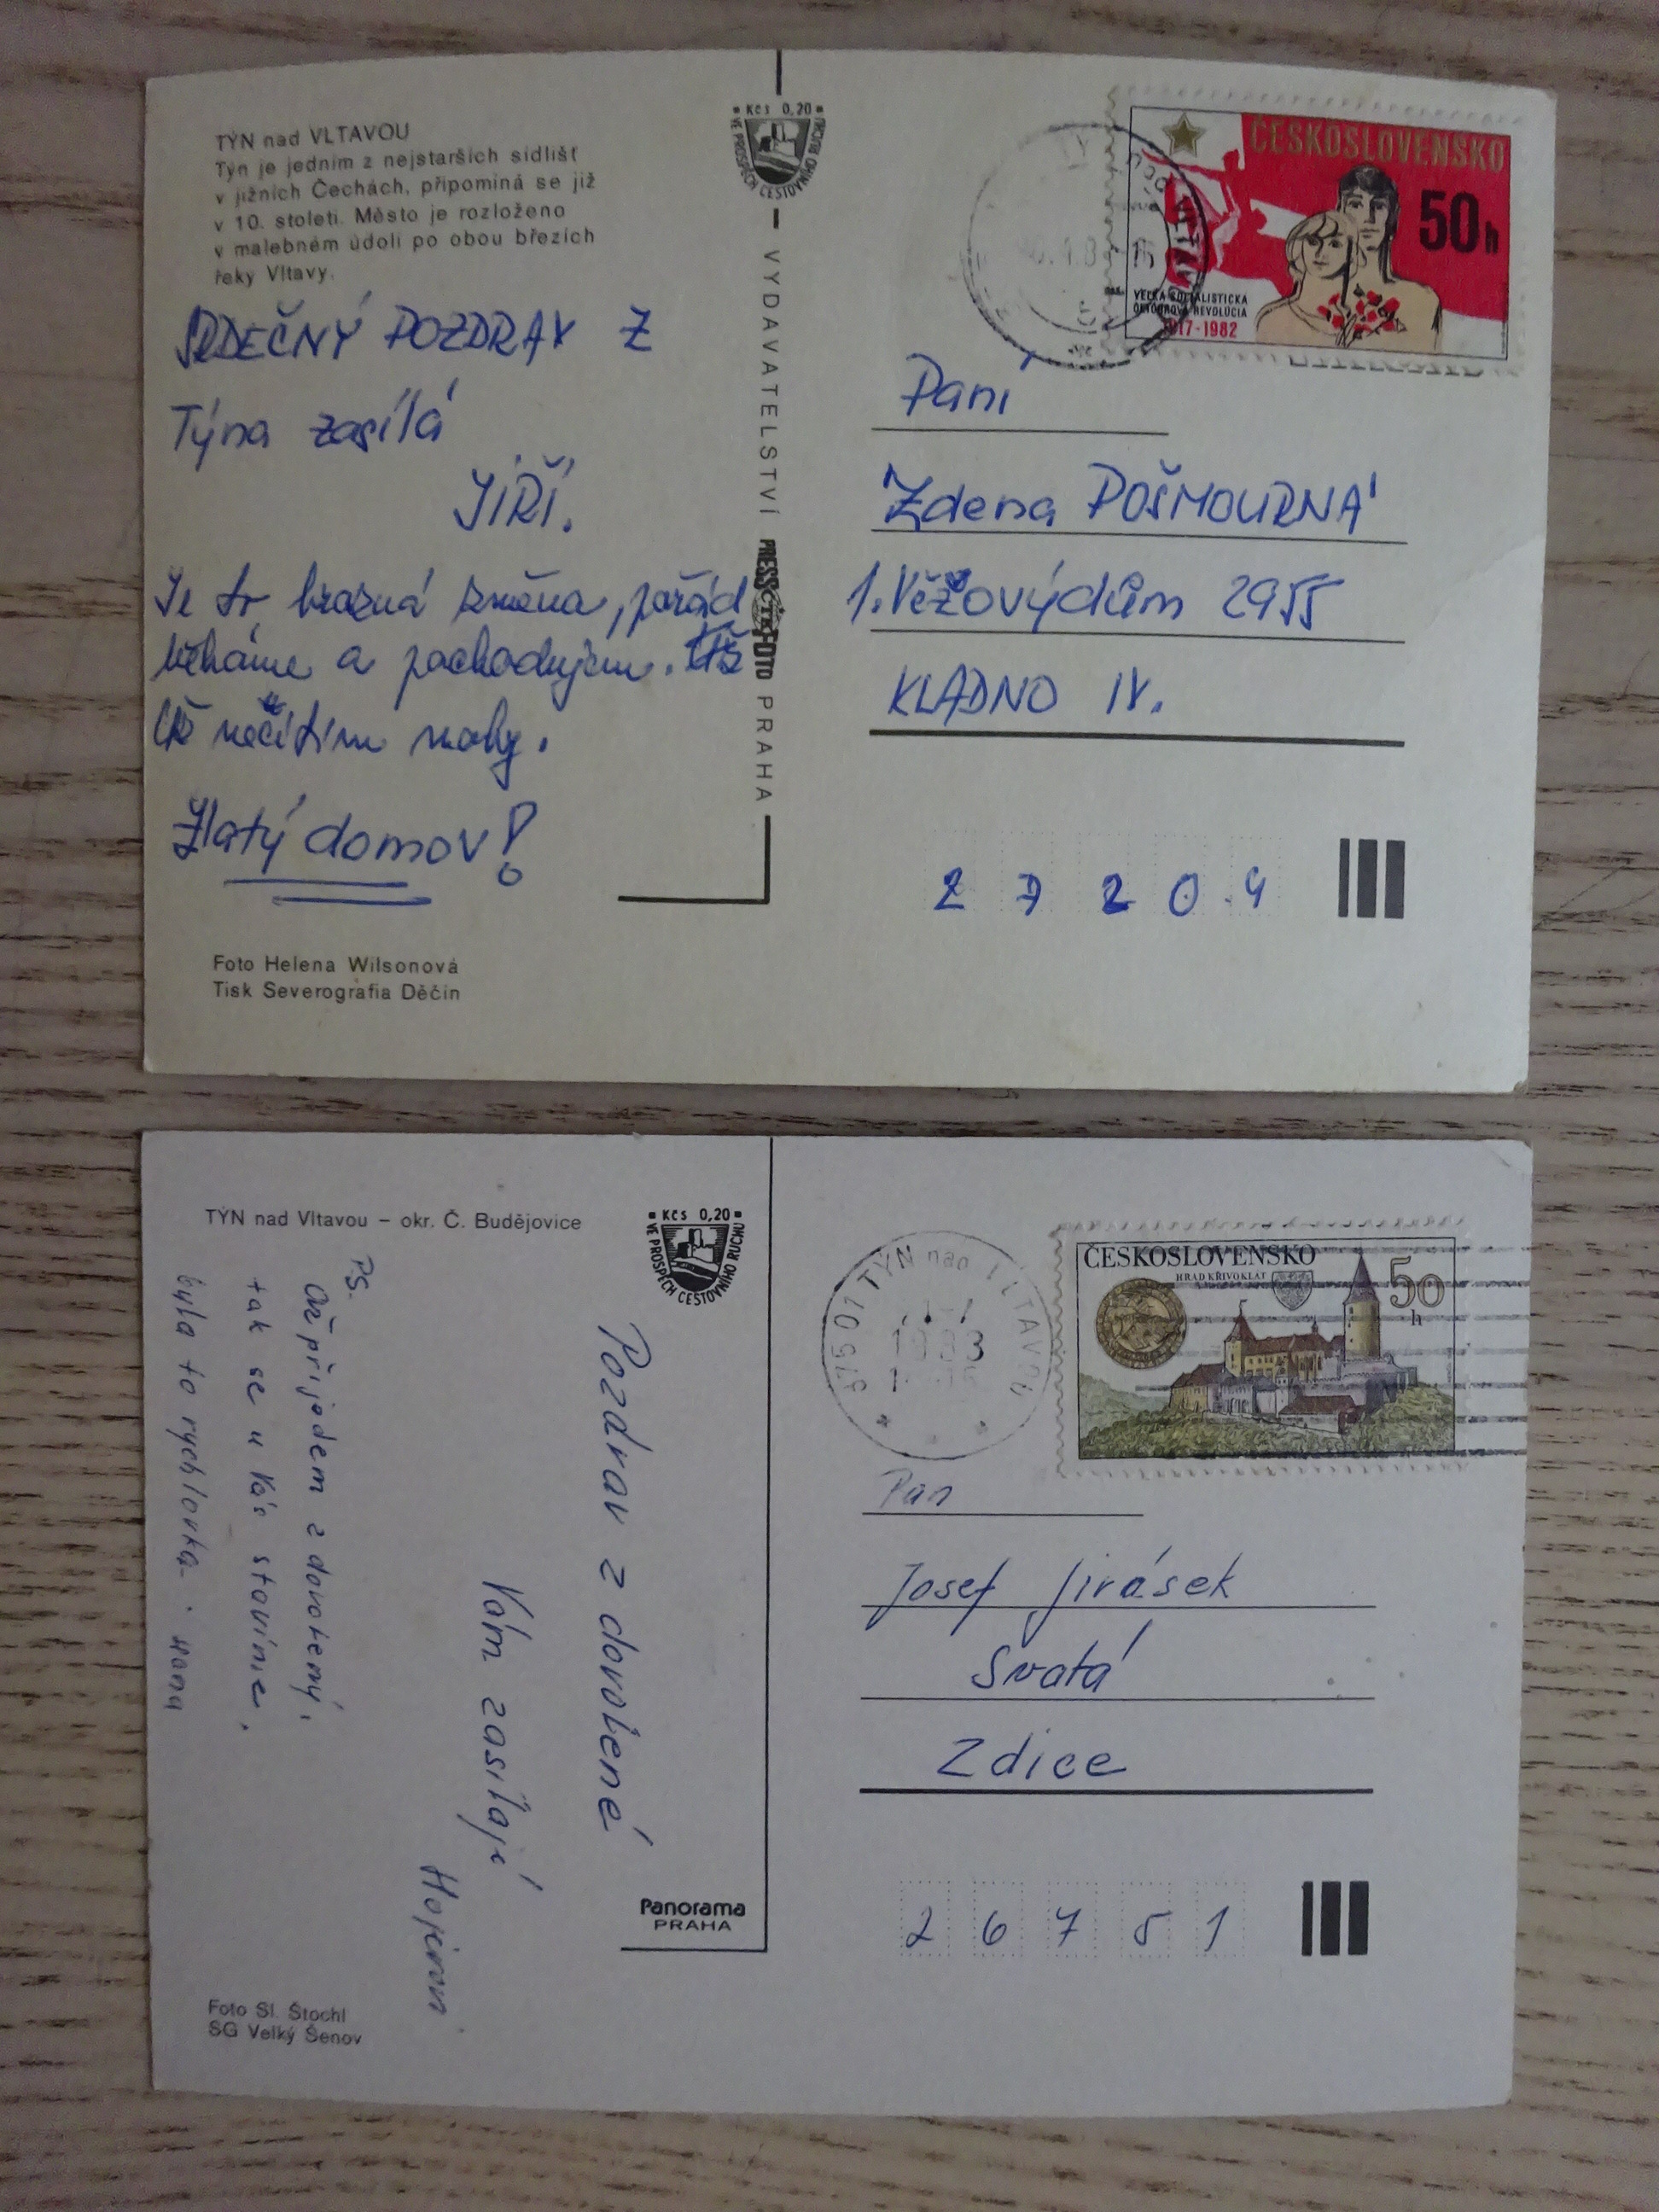 TÝN nad VLTAVOU
Týn je jedním z nejstarších sídlišť
v jižních Čechách, připomíná se již
v 10. století. Město je rozloženo
v malebném údolí po obou březích
řeky Vltavy.
SRDEČNÝ POZDRAV Z
Týna zasílá
JIŘÍ.
Je to hrozná změna, pořád
běháme a pochodujem.
Už necítím nohy.
Zlatý domov!
Foto Helena Wilsonová
Tisk Severografia Děčín
Kčs 0,20
VE PROSPĚCH CESTOVNÍHO RUCHU
VYDAVATELSTVÍ PRESSFOTO PRAHA
ČESKOSLOVENSKO
50h
VEĽKÁ SOCIALISTICKÁ
OKTÓBROVÁ REVOLÚCIA
1917-1982
Paní
Zdena POŠMOURNÁ
1. Věžový dům 2955
KLADNO IV.
2 7 2 0 4
TÝN nad Vltavou – okr. Č. Budějovice
Kčs 0,20
VE PROSPĚCH CESTOVNÍHO RUCHU
Pozdrav z dovolené
Vám zasílají
PS.
až přijedem z dovolený,
tak se u Vás stavíme,
byla to rychlovka.
Panorama
PRAHA
Foto Sl. Štochl
SG Velký Šenov
375 01 TÝN nad VLTAVOU
1983
ČESKOSLOVENSKO
HRAD KŘIVOKLÁT
50
h
Pan
Josef Jirásek
Svatá
Zdice
2 6 7 5 1